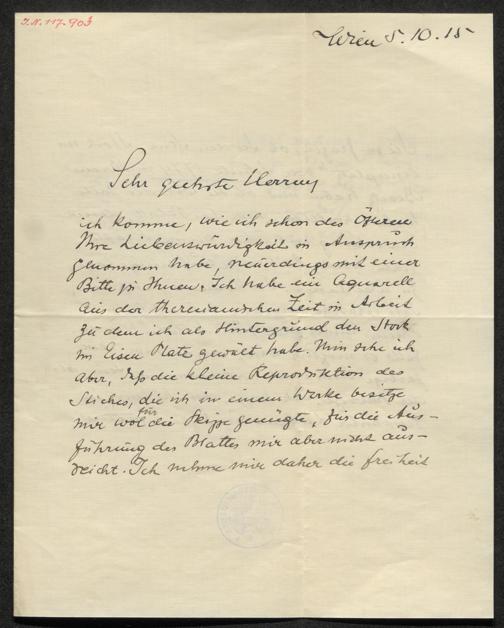 I.N. 117.903
Wien 5.10.15
Sehr geehrte Herren,
ich komme, wie ich schon des Öfteren
Ihre Liebenswürdigkeit in Anspruch
genommen habe, neuerdings mit einer
Bitte zu Ihnen. Ich habe ein Aquarell
aus der theresianischen Zeit in Arbeit
zu dem ich als Hintergrund den Stock
im Eisen Platz gewält habe. Nun sehe ich
aber, daß die kleine Reproduktion des
Stiches, die ich in einem Werke besitze
mir wol für die Skizze genügte, für die Aus-
führung des Blattes mir aber nicht aus-
reicht. Ich nehme mir daher die Freiheit